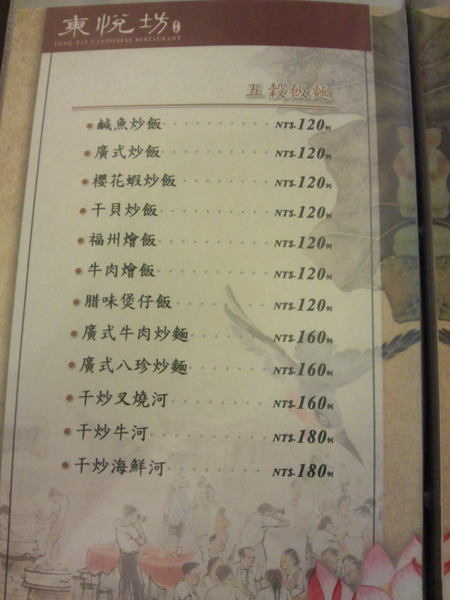 東悅坊
TUNG YAT CANTONESE RESTAURANT
五穀飯麵
鹹魚炒飯 NT$.120/例
廣式炒飯 NT$.120/例
櫻花蝦炒飯 NT$.120/例
干貝炒飯 NT$.120/例
福州燴飯 NT$.120/例
牛肉燴飯 NT$.120/例
腊味煲仔飯 NT$.120/例
廣式牛肉炒麵 NT$.160/例
廣式八珍炒麵 NT$.160/例
干炒叉燒河 NT$.160/例
干炒牛河 NT$.180/例
干炒海鮮河 NT$.180/例